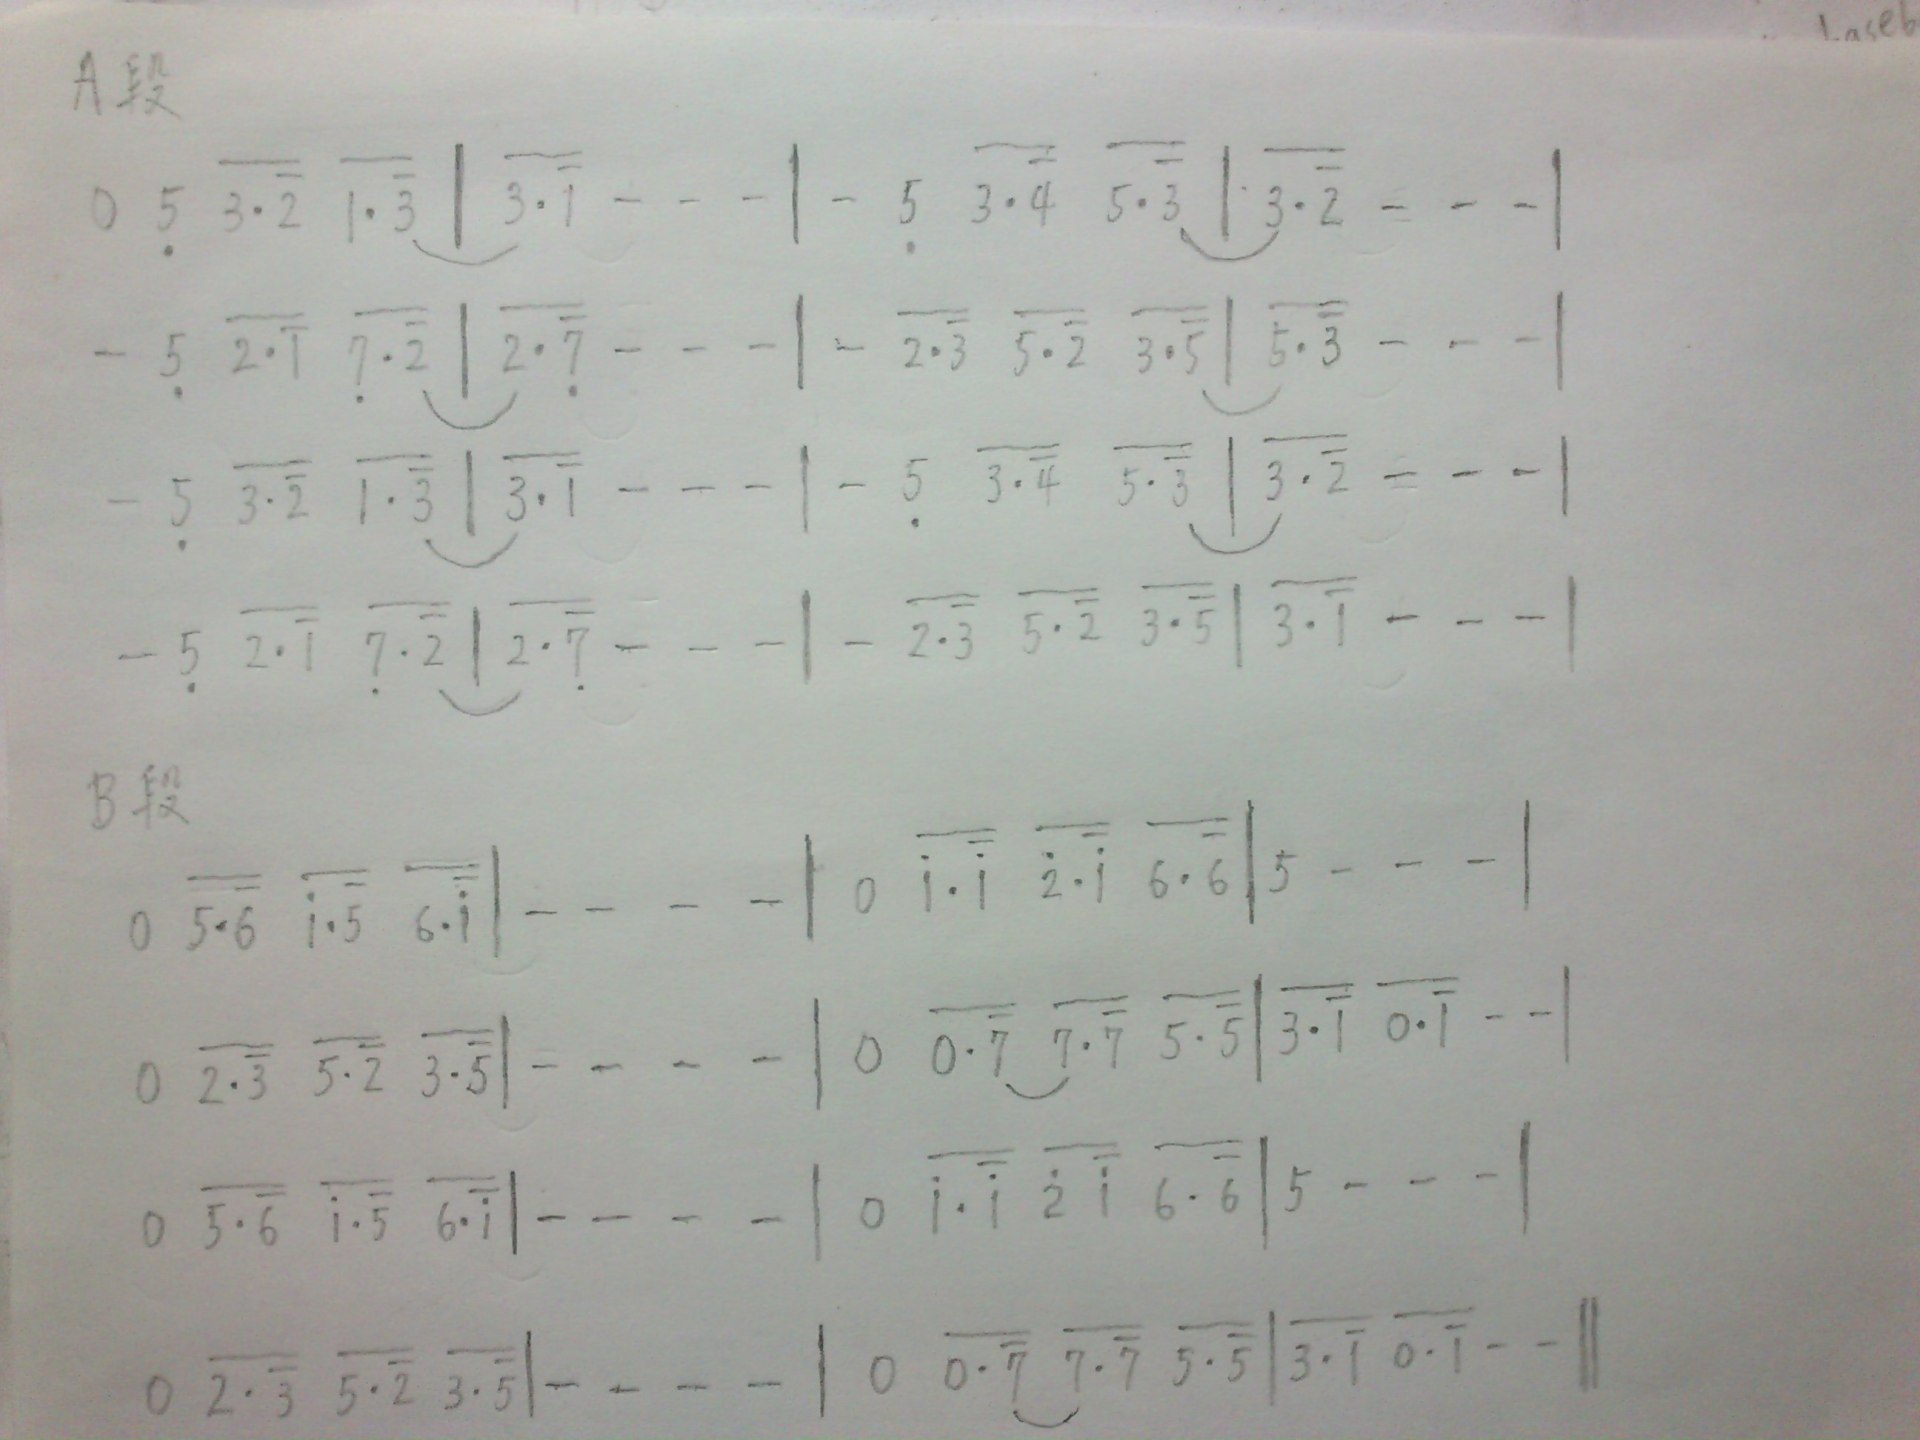 Laseb
A段
0 5̣ 3·2 1·3 | 3·1 - - - | - 5̣ 3·4 5·3 | 3·2 - - - |
- 5̣ 2·1 7̣·2 | 2·7̣ - - - | - 2·3 5·2 3·5 | 5·3 - - - |
- 5̣ 3·2 1·3 | 3·1 - - - | - 5̣ 3·4 5·3 | 3·2 - - - |
- 5̣ 2·1 7̣·2 | 2·7̣ - - - | - 2·3 5·2 3·5 | 3·1 - - - |
B段
0 5·6 i·5 6·i | - - - - | 0 i·i 2̇·i 6·6 | 5 - - - |
0 2·3 5·2 3·5 | - - - - | 0 0·7 7·7 5·5 | 3·1 0·1 - - |
0 5·6 i·5 6·i | - - - - | 0 i·i 2̇ i 6·6 | 5 - - - |
0 2·3 5·2 3·5 | - - - - | 0 0·7 7·7 5·5 | 3·1 0·1 - - ‖